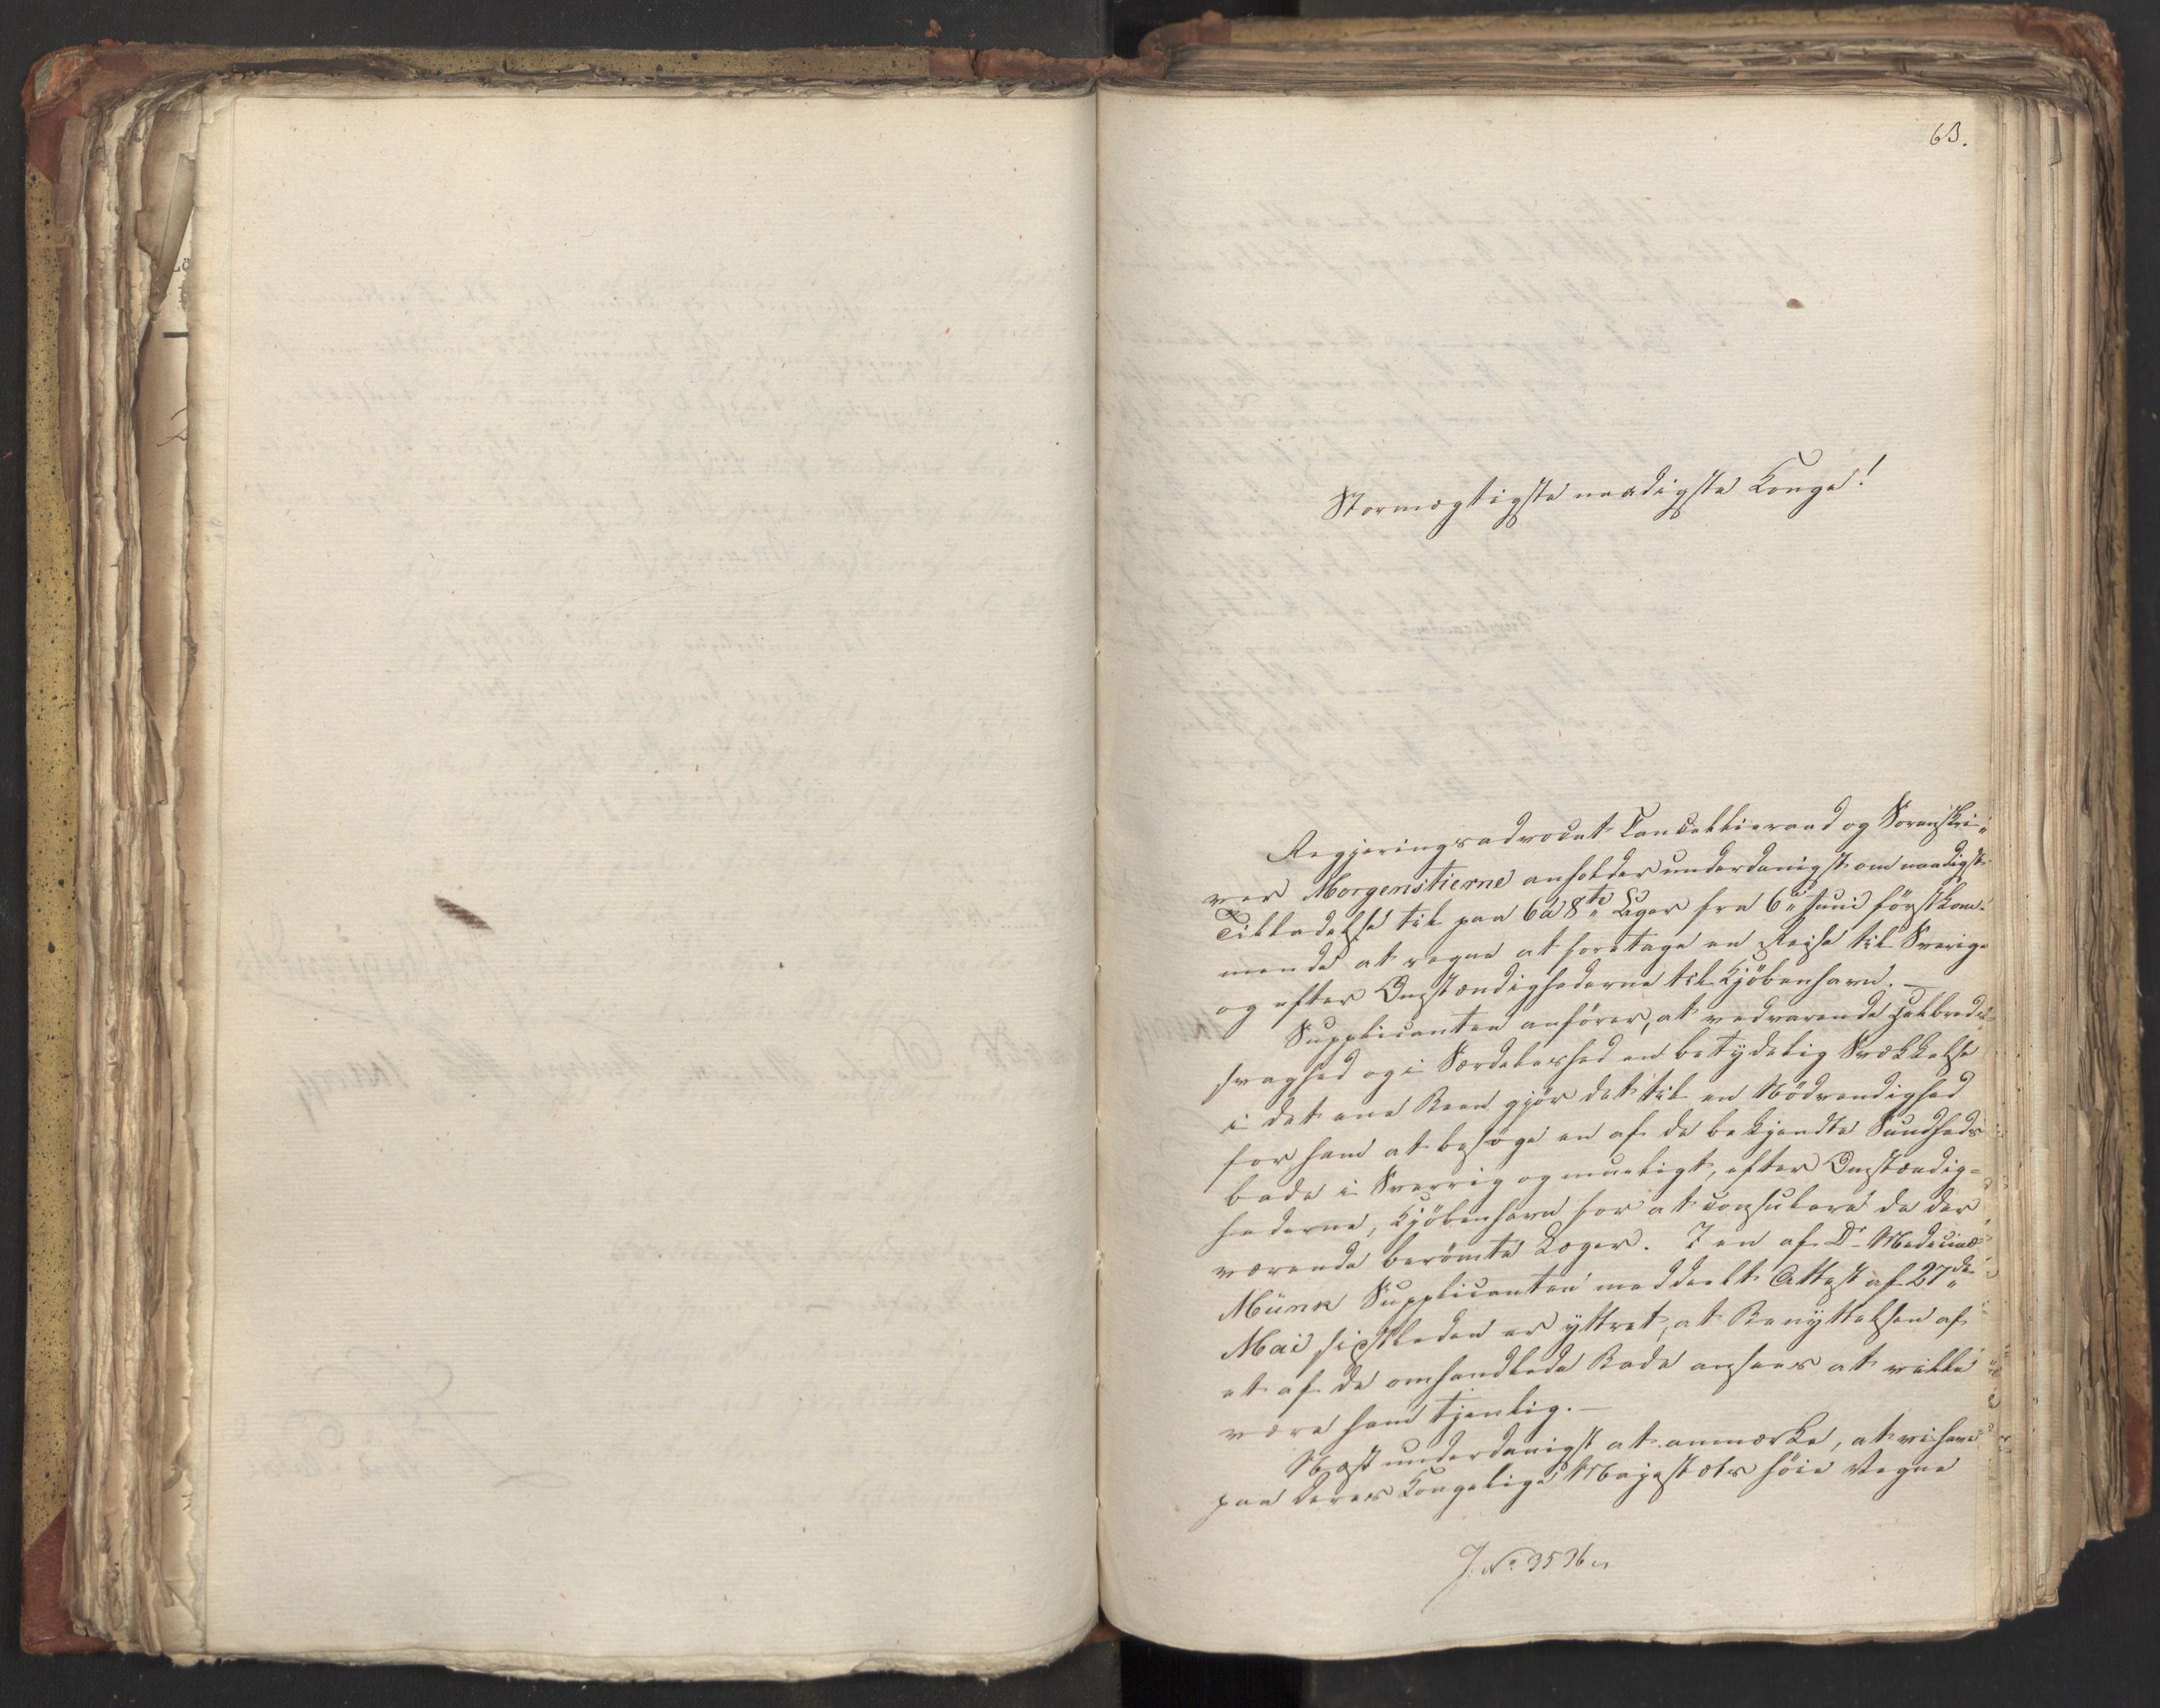 63.
Stormægtigste naadigste Konge!
Regjeringsadvocat Cancelliraad og Sorenskri-
ver Morgenstierne anholder underdanigst om naadigst
Tilladelse til paa 6 à 8te Uger fra 6te Juni förstkom-
mende at regne at foretage en Reise til Sverige
og efter Omstændighederne til Kjöbenhavn. —
Supplicanten anförer, at vedvarende Helbreds-
svaghed og i Særdeleshed en betydelig Svækkelse
i det ene Been gjör det til en Nödvendighed
for ham at besöge en af de bekjendte Sundheds
bade i Sverrig og mueligt, efter Omstændig-
hederne, Kjöbenhavn for at consulere de der
værende berömte Læger. I en af Dr Medicinæ
Münk Supplicanten meddeelt Attest af 27de
Mai sidstleden er yttret, at Benyttelsen af
et af de omhandlede Bade ansees at ville
være ham tjenlig. —
Næst underdanigst at anmærke, at vi have
paa Deres Kongelige Majestæts höie Vegne
J. No 3536